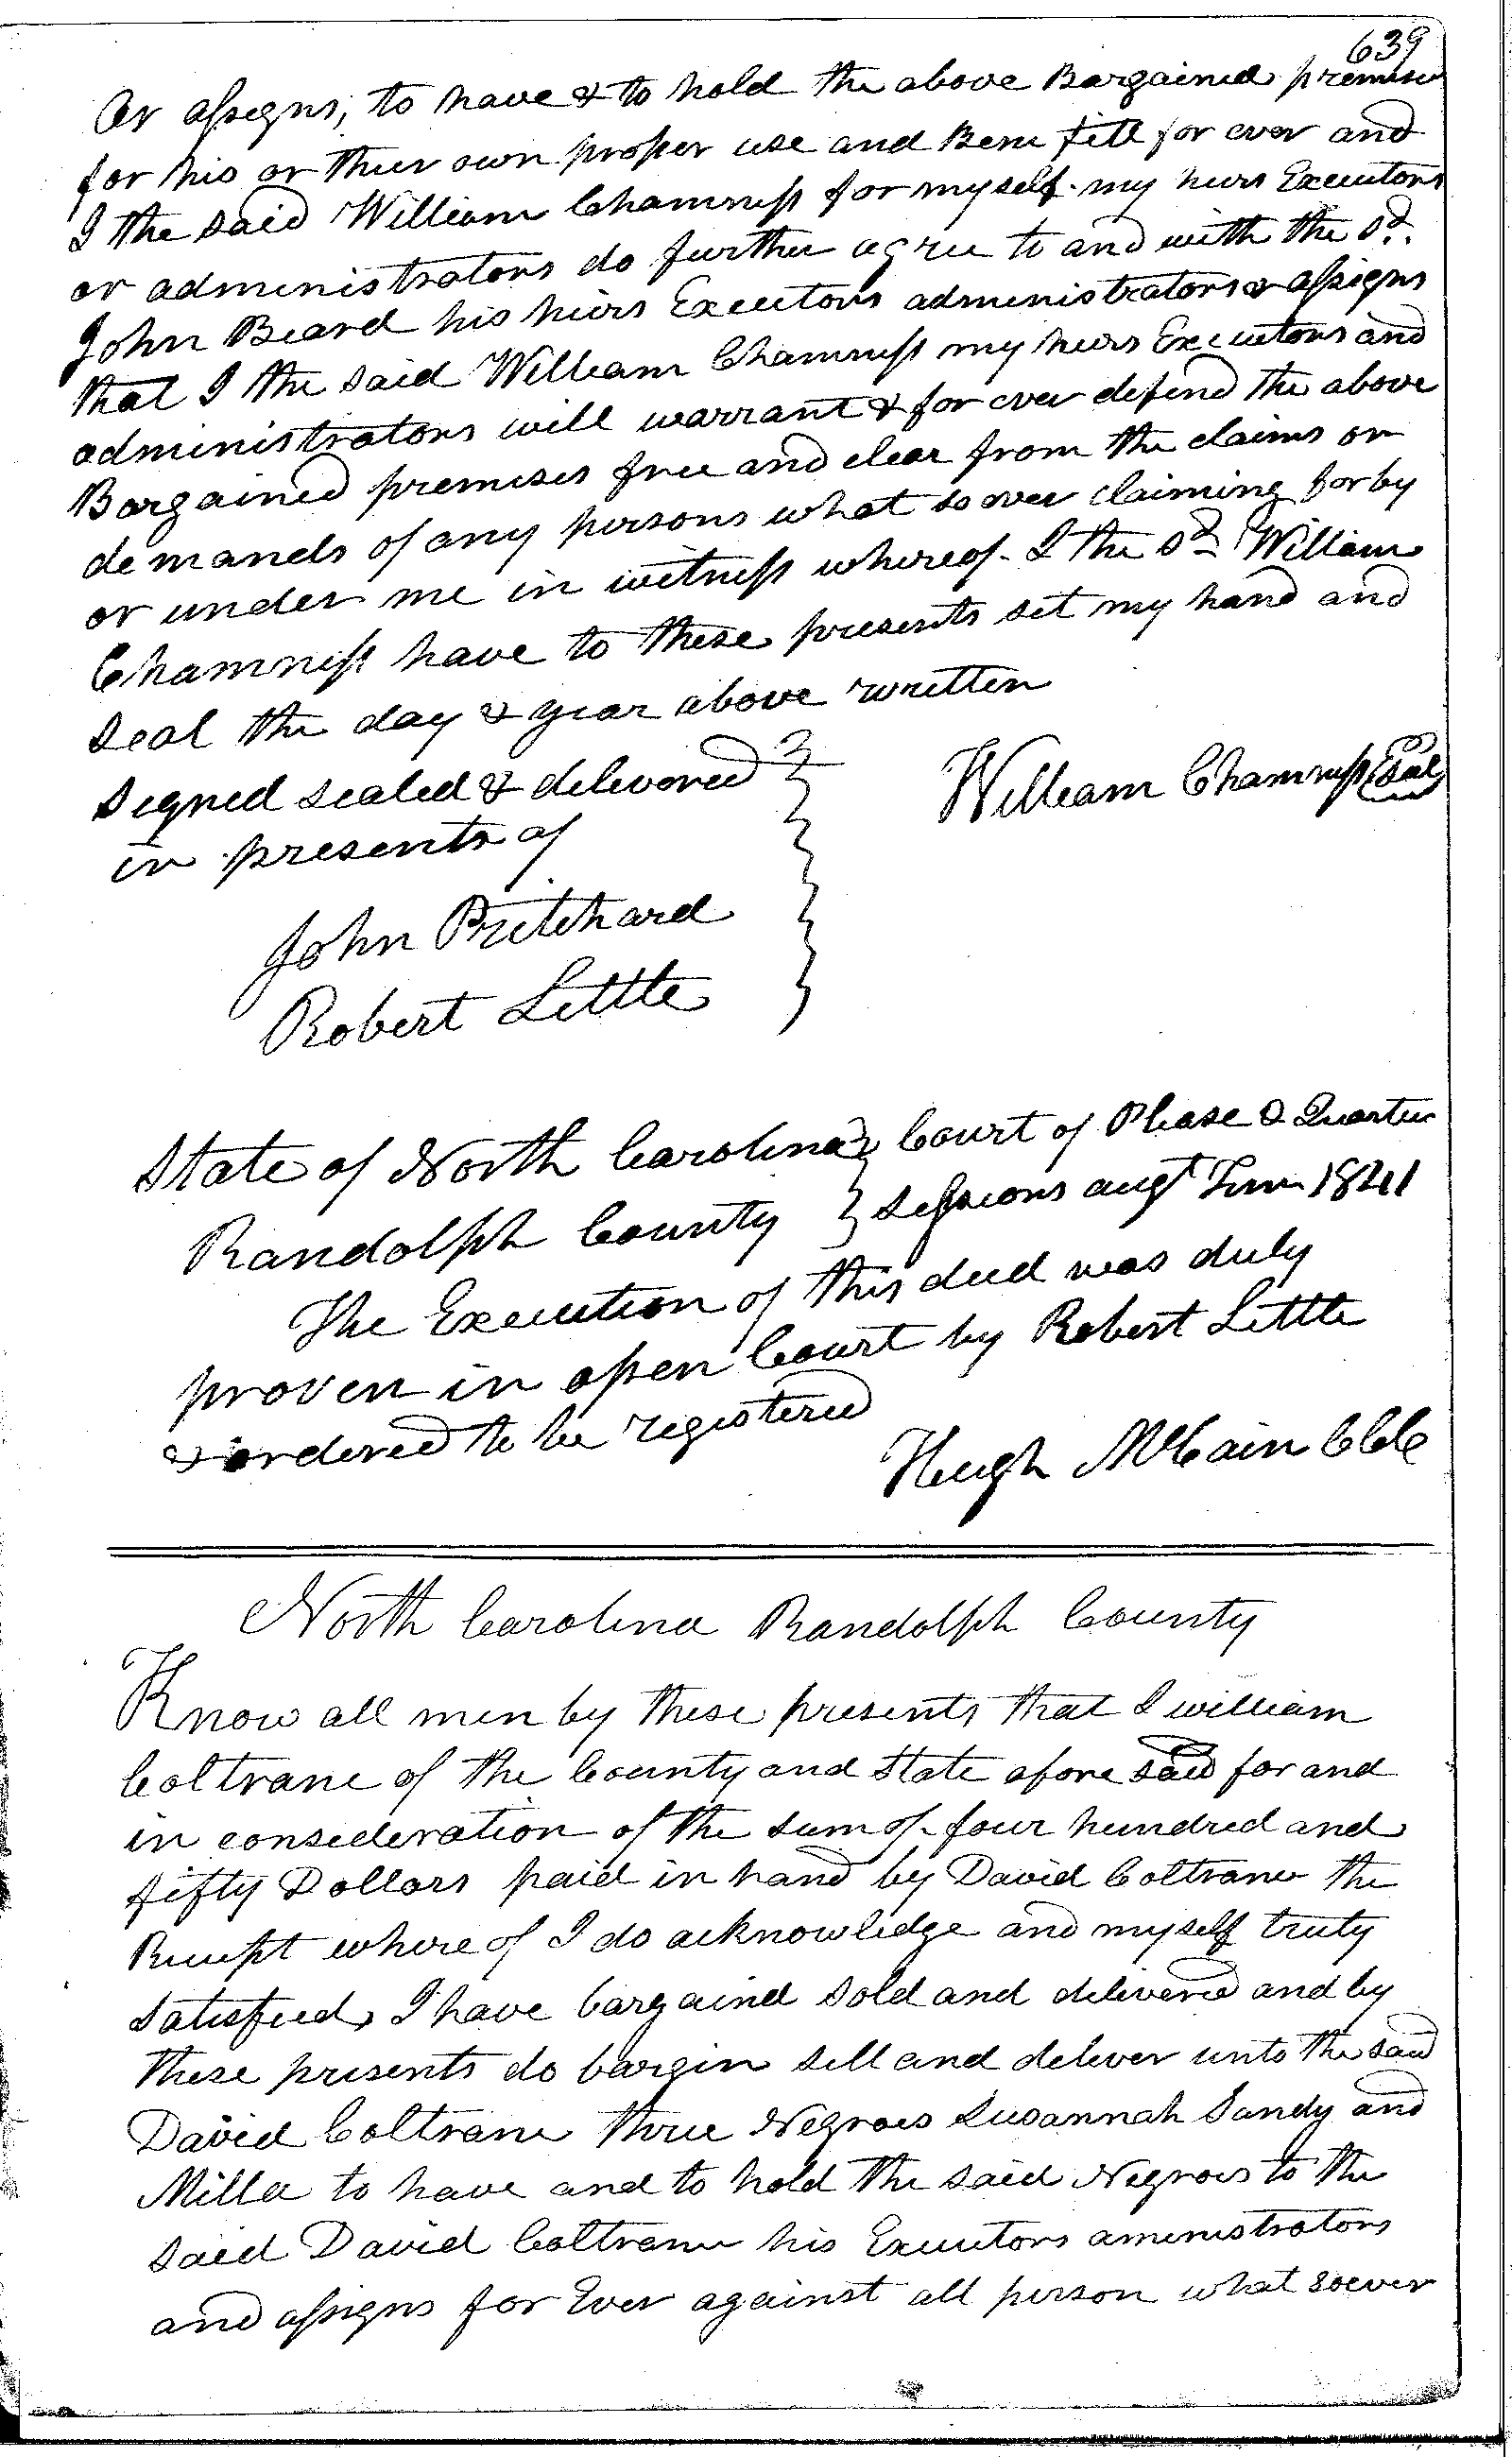 639
Or assigns, to have & to hold the above Bargained premises
for his or their own proper use and Bene fitt for ever and
I the said William Chamness for myself my heirs Executors
or administrators do further agree to and with the sd.
John Beard his heirs Executors administrators & assigns
that I the said William Chamness my heirs Executors and
administrators will warrant & for ever defend the above
Bargained premises free and clear from the claims or
demands of any persons what so ever claiming for by
or under me in witness whereof I the sd William
Chamness have to these presents set my hand and
seal the day & year above written
Signed sealed & delivered
William Chamness Seal
in presents of
John Pritchard
Robert Little
State of North Carolina Court of Please & Quarter
Randolph County Sessions augt Term 1841
The Execution of this deed was duly
proven in open Court by Robert Little
& ordered to be registered
Hugh McCain Clk
North Carolina Randolph County
Know all men by these presents that I william
Coltrane of the County and State afore said for and
in consideration of the sum of four hundred and
fifty Dollars paid in hand by David Coltrane the
Receipt where of I do acknowledge and myself truly
satisfied, I have bargaind sold and delivered and by
these presents do bargin sell and deliver unto the said
David Coltrane three Negroes Susannah Sandy and
Milla to have and to hold the said Negroes to the
said David Coltrane his Executors aministrators
and assigns for Ever against all person what soever